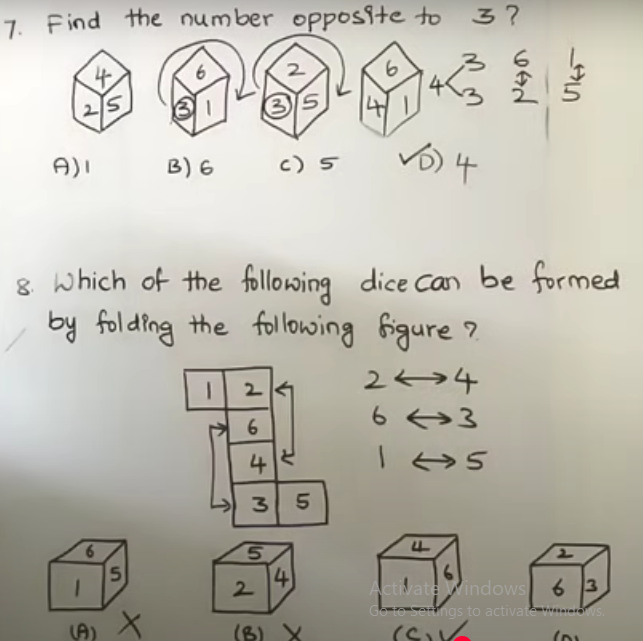 7. Find the number opposite to 3?
4 2 5
6 3 1
2 3 5
6 4 1
4 < 3 3
6 ↕ 2
1 ↕ 5
A) 1 B) 6 C) 5 ✓D) 4
8. Which of the following dice can be formed
by folding the following figure?
1 2
6
4
3 5
2 ↔ 4
6 ↔ 3
1 ↔ 5
6 1 5
5 2 4
4 1 6
2 6 3
Activate Windows
Go to Settings to activate Windows.
(A) X (B) X (C) ✓ (D)